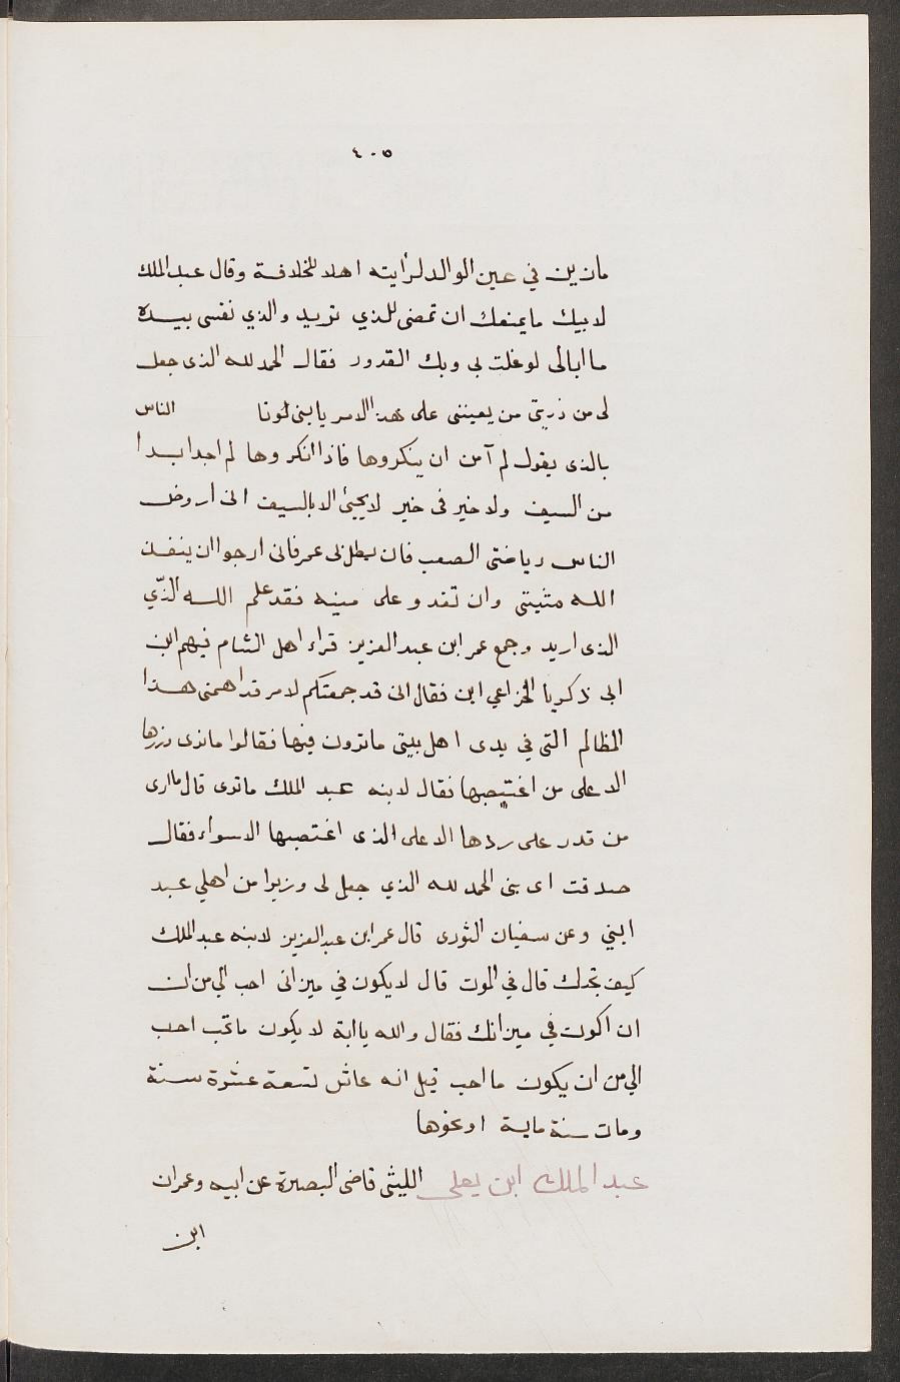 ٤٠٥
ما زين في عين الوالد لرأيته اهلا للخلافة وقال عبد الملك
لابيك ما يمنعك ان تمضى للذي تريد والذي نفسى بيده
ما ابالى لو غلت بى وبك القدور فقال الحمد لله الذى جعل
لى من ذريتى من يعيننى على هذا الامر يا بنى الناس
بالذى يقول لم آمن ان ينكروها فاذا انكروها لم اجد ابدا
من السيف ولا خير فى خير لا يجيئ الا بالسيف انى اروض
الناس رياضتى الصعب فان يطل لى عمر فانى ارجوا ان ينفذ
الله مشيتى وان تغدو على منيه فقد علم الله الذّي
الذى اريد وجمع عمر ابن عبد العزيز قراء اهل الشام فيهم ابن
ابى ذكريا الخزاعي ابن فقال انى قد جمعتكم لامر قد اهمنى هذا
المظالم التى في يدى اهل بيتى ما ترون فيها فقالوا ما نرى وزرها
الا على من اغتصبها فقال لابنه عبد الملك ما ترى قال ما ارى
من قدر على ردها الا على الذى اغتصبها الا سواء فقال
صدقت اى بنى الحمد لله الذي جعل لى وزيرا من اهلي عبد
ابني وعن سفيان الثورى قال عمر ابن عبد العزيز لابنه عبد الملك
كيف تجدك قال في الموت قال لا يكون في ميزانى احب الي من ان
ان اكون في ميزانك فقال والله يا ابة لا يكون ما تحب احب
الي من ان يكون ما احب قيل انه عاش تسعة عشرة سنة
ومات سنة ماية او نحوها
عبد الملك ابن يعلى الليثى قاضى البصرة عن ابيه وعمران
ابن